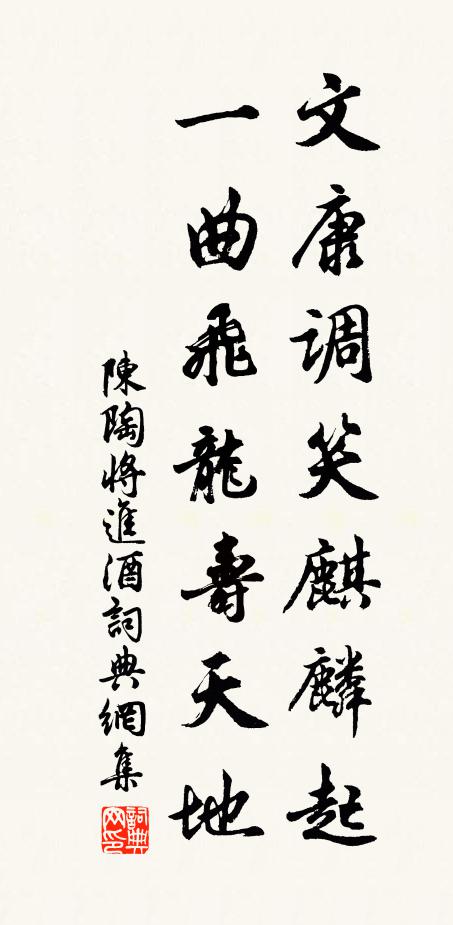 文康調笑麒麟起
一曲飛龍壽天地
陳陶將進酒詞典網集
詞典网印